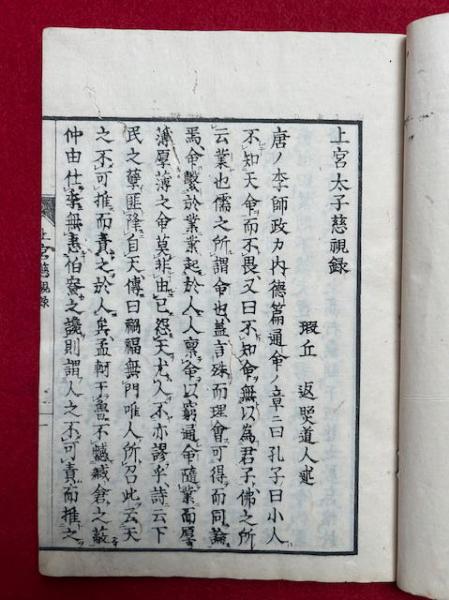 上宮太子慈視録
瑕丘 返 道人述
唐ノ李師政カ内德篇通命ノ章ニ曰孔子曰小人
不知天命而不畏又曰不知命無以為君子佛之所
云業也儒之所謂命也蓋言殊而理會可得而同論
焉命繫於業業起於人人禀命以窮通命隨業而厚
薄厚薄之命莫非由己怨天尤人不亦謬乎詩云下
民之孽匪降自天傳曰禍福無門唯人所召此云天
之不可推而責之於人矣孟軻于魯不憾臧倉之蔽
仲由仕季無恚伯寮之讒則謂人之不可責而推之
上宮慈視録